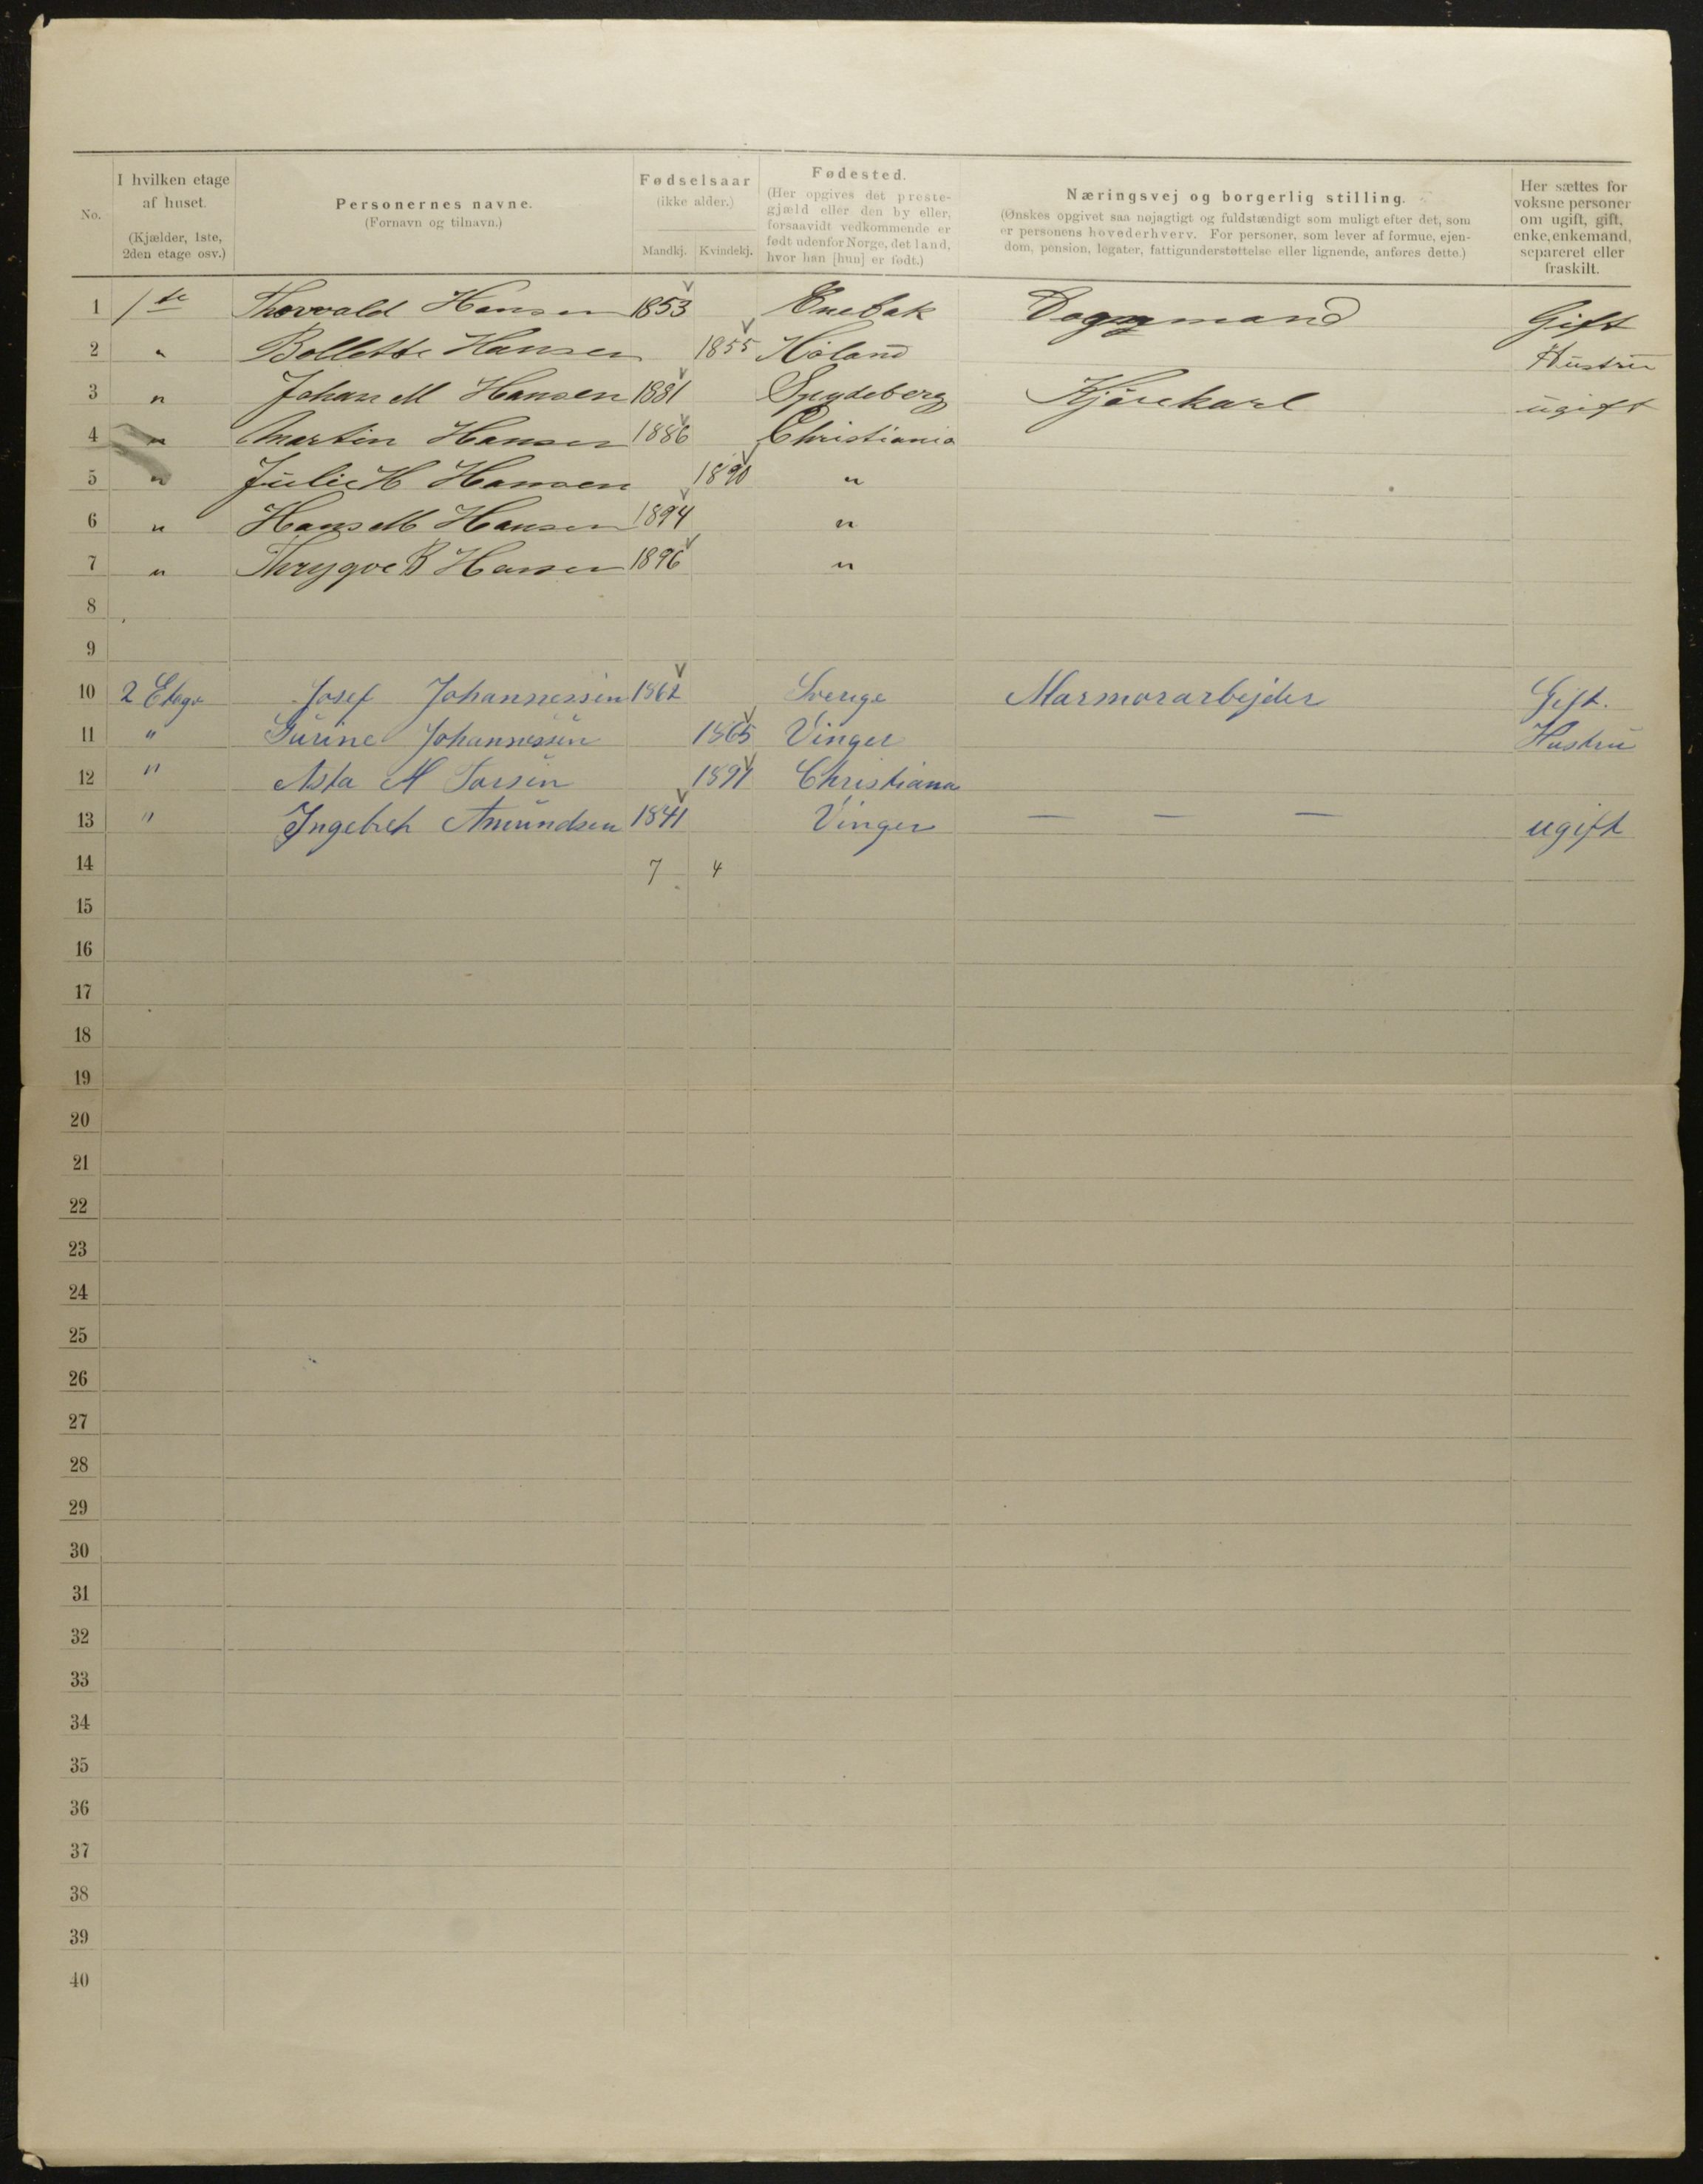 No.
I hvilken etage af huset. (Kjælder, 1ste, 2den etage osv.)
Personernes navne. (Fornavn og tilnavn.)
Fødselsaar (ikke alder.) Mandkj. Kvindekj.
Fødested. (Her opgives det prestegjæld eller den by eller, forsaavidt vedkommende er født udenfor Norge, det land, hvor han [hun] er født.)
Næringsvej og borgerlig stilling. (Ønskes opgivet saa nøjagtigt og fuldstændigt som muligt efter det, som er personens hovederhverv. For personer, som lever af formue, ejendom, pension, legater, fattigunderstøttelse eller lignende, anføres dette.)
Her sættes for voksne personer om ugift, gift, enke, enkemand, separeret eller fraskilt.
1 1ste Thorvald Hansen 1853 Enebak Gift
2 " Bollette Hansen 1855 Høland Hustru
3 " Johan M Hansen 1881 Spydeberg Kjørekarl ugift
4 " Martin Hansen 1886 Christiania
5 " Julie H Hansen 1890 "
6 " Hans M Hansen 1894 "
7 " Thrygve B Hansen 1896 "
8
9
10 2 Etage Josef Johannessen 1862 Sverige Marmorarbejder Gift.
11 " Gurine Johannessen 1865 Vinger Hustru
12 " Asta M 1891 Christiana
13 " Ingebreh Amundsen 1841 Vinger — — — ugift
14 7 4
15
16
17
18
19
20
21
22
23
24
25
26
27
28
29
30
31
32
33
34
35
36
37
38
39
40